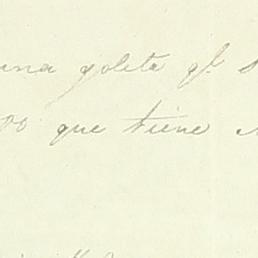 una goleta qe
00 que tiene